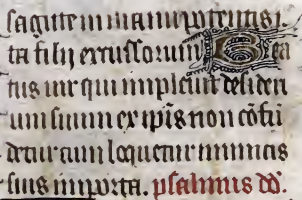 sagitte in manu potentis i-
ta filii excussorum Bea
tus vir qui implevit desideri
um suum ex ip̄is non cōfū
detur cum loquetur inimicis
suis in porta. psalmus dd̄.